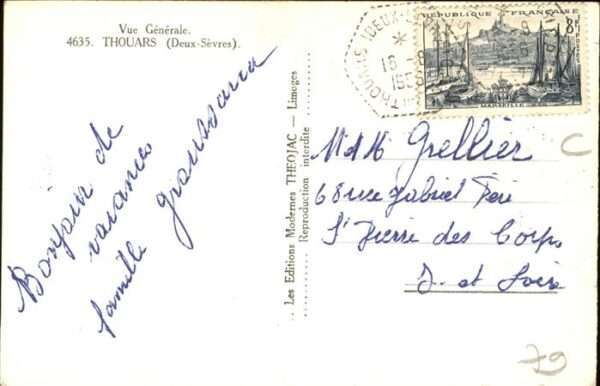 Vue Générale.
4635. THOUARS (Deux-Sèvres).
Bonjour de
vacances
famille
Les Editions Modernes THEOJAC — Limoges
Reproduction interdite
THOUARS (DEUX-
*
16 -8
REPUBLIQUE FRANÇAISE
8F
MARSEILLE
M et M Grellier
68 rue Gabriel Péri
St Pierre des Corps
I. et Loire
C
79